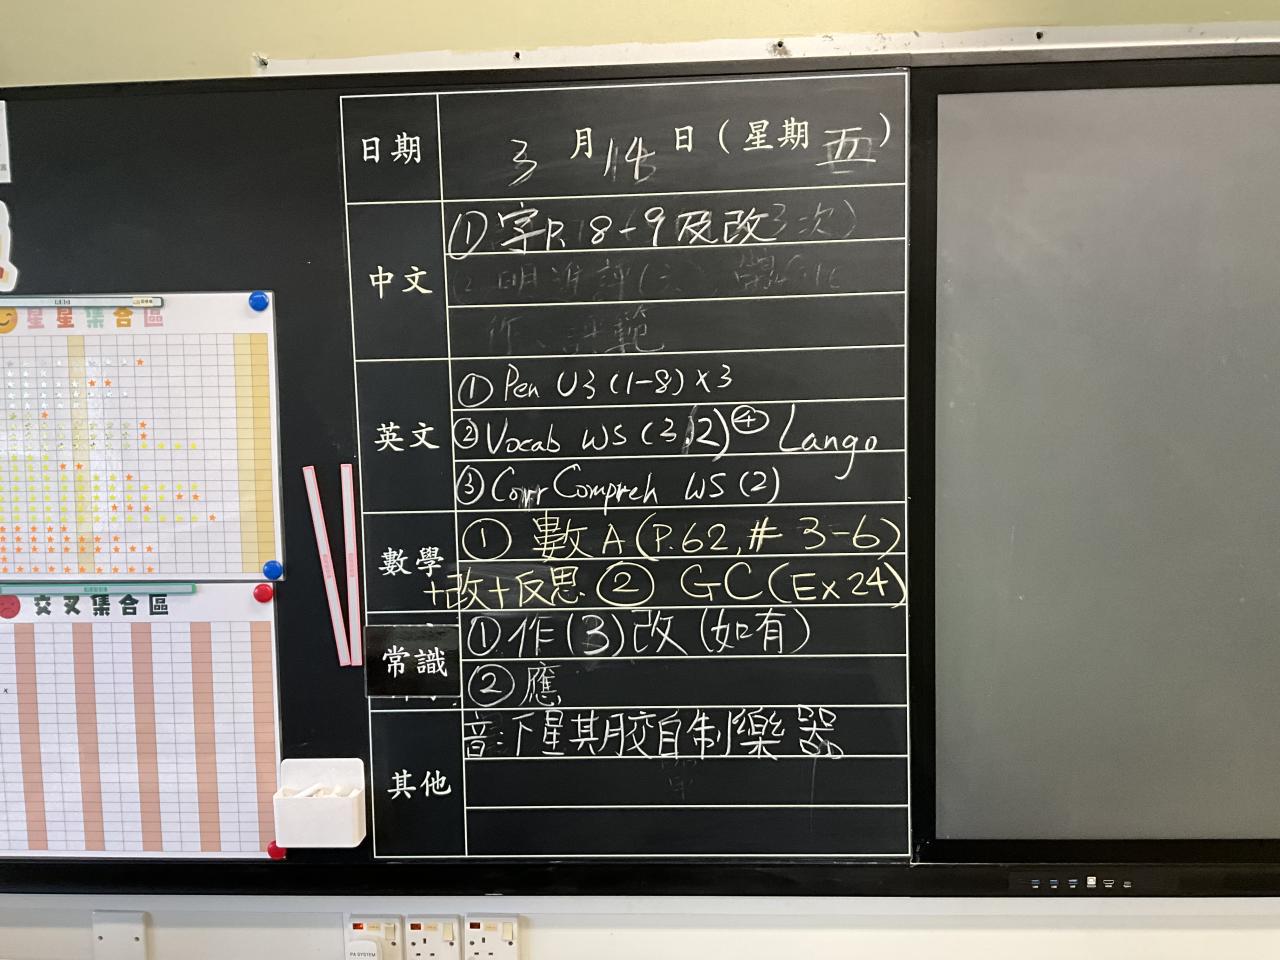 日期 3月14日（星期五）
中文 ① 字P. 8-9及改
英文 ① Pen U3 (1-8) x3
② Vocab WS (3.2) ④ Lango
③ Corr Compreh WS (2)
數學 ① 數A (P.62, # 3-6)
+改+反思 ② GC (Ex 24)
常識 ① 作(3)改 (如有)
② 應
其他 音:下星其月交自制樂器
星星集合區
交叉集合區
PA SYSTEM